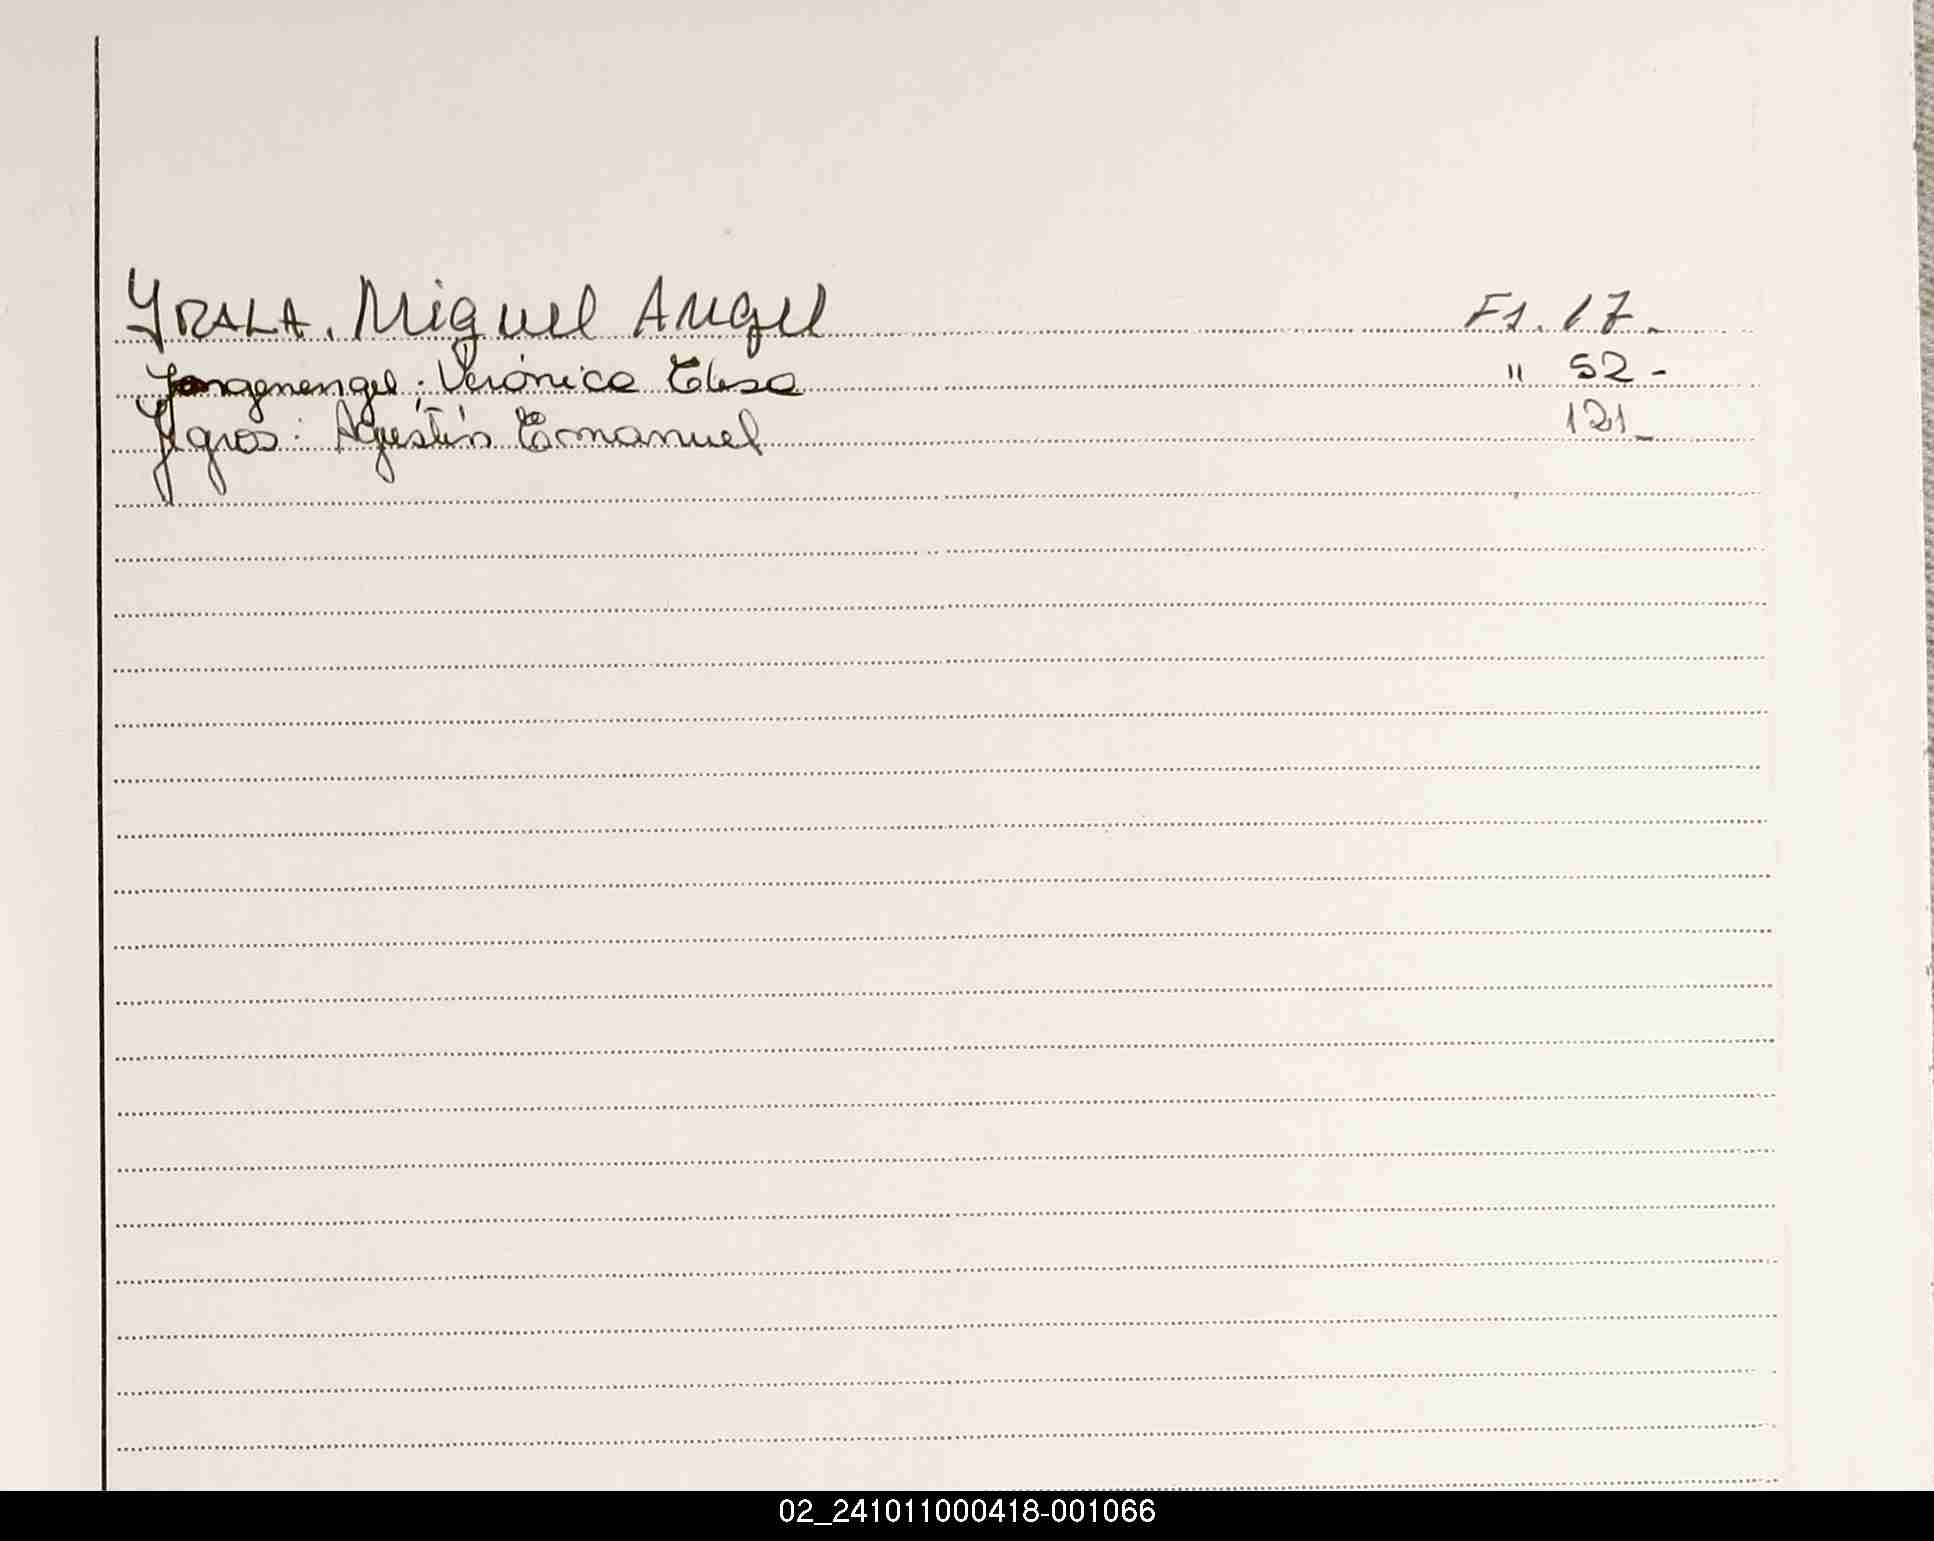 YRALA. Miguel Angel F1. 17.
Yongenengel; Verónica Elisa " 52-
Yegros: Agustín Emanuel 121_
02_241011000418-001066